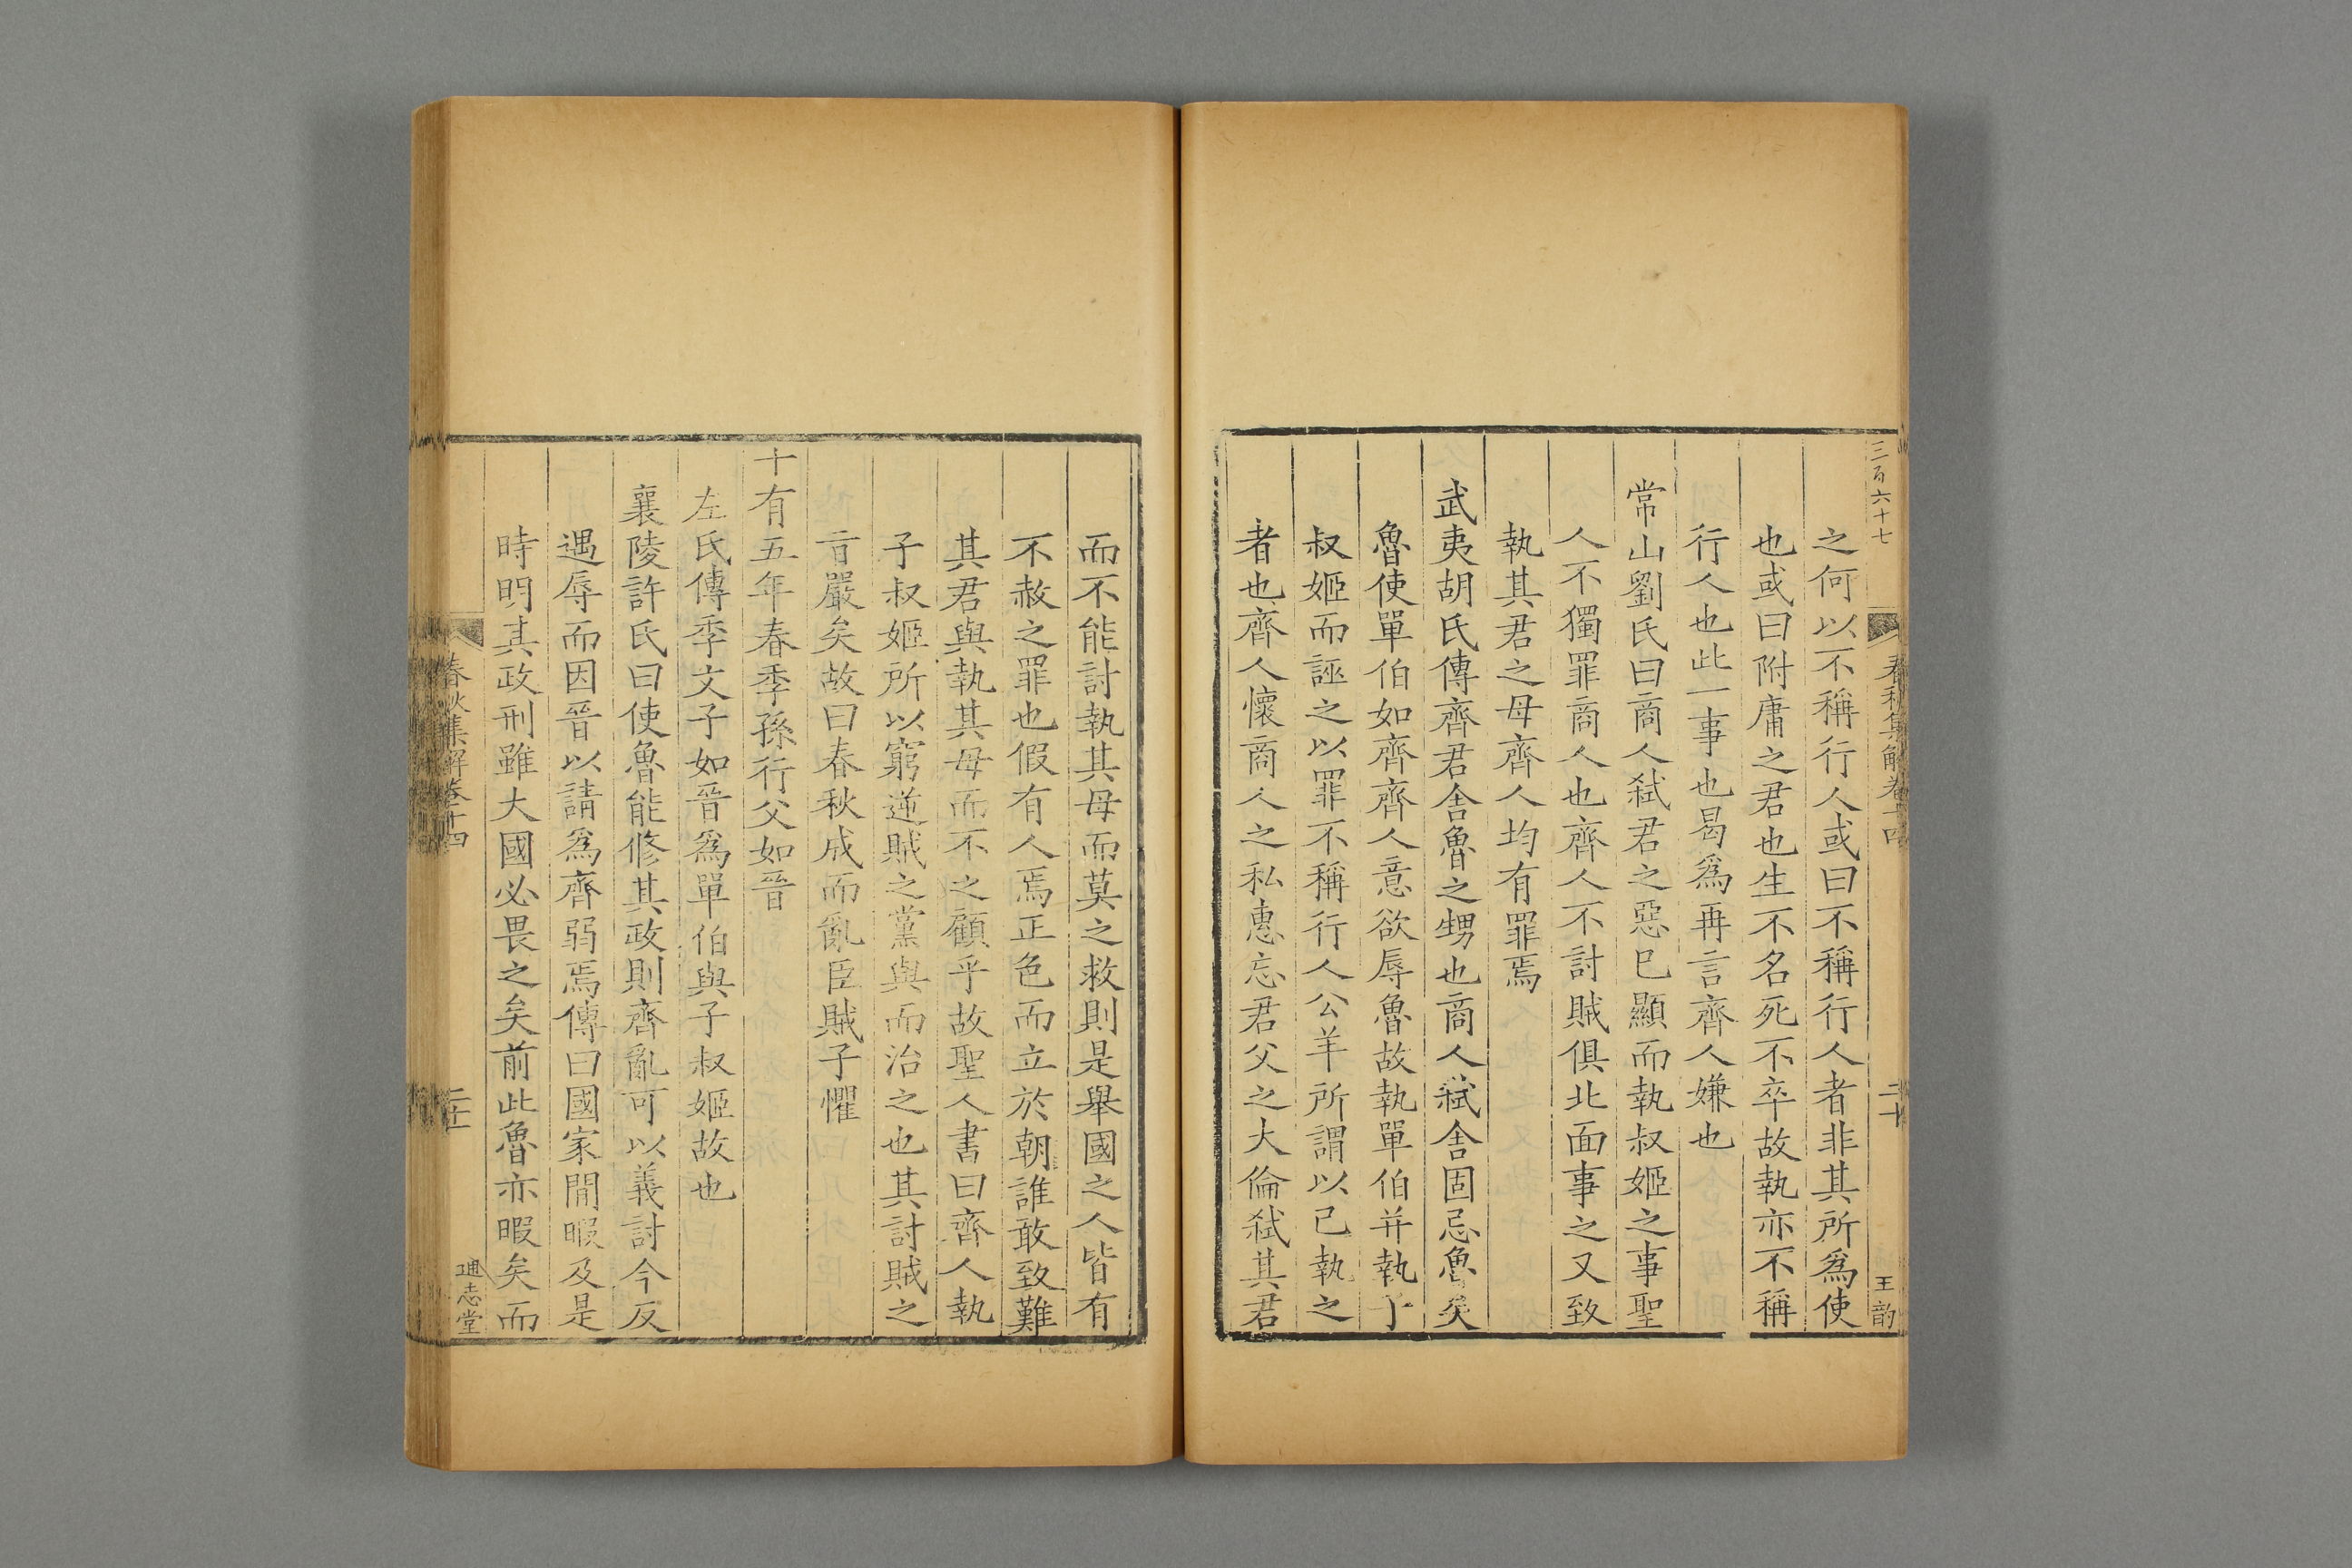 三百六十七
春秋集解卷十四
二十
王韵
之何以不稱行人或曰不稱行人者非其所爲使
也或曰附庸之君也生不名死不卒故執亦不稱
行人也此一事也曷爲再言齊人嫌也
常山劉氏曰商人弑君之惡已顯而執叔姬之事聖
人不獨罪商人也齊人不討賊俱北面事之又致
執其君之母齊人均有罪焉
武夷胡氏傳齊君舍魯之甥也商人弑舍固忌魯矣
魯使單伯如齊齊人意欲辱魯故執單伯并執子
叔姬而誣之以罪不稱行人公羊所謂以己執之
者也齊人懷商人之私惠忘君父之大倫弑其君
而不能討執其母而莫之救則是舉國之人皆有
不赦之罪也假有人焉正色而立於朝誰敢致難
其君與執其母而不之顧乎故聖人書曰齊人執
子叔姬所以窮逆賊之黨與而治之也其討賊之
言嚴矣故曰春秋成而亂臣賊子懼
十有五年春季孫行父如晉
左氏傳季文子如晉爲單伯與子叔姬故也
襄陵許氏曰使魯能修其政則齊亂可以義討今反
遇辱而因晉以請爲齊弱焉傳曰國家閒暇及是
時明其政刑雖大國必畏之矣前此魯亦暇矣而
春秋集解卷十四
二十一
通志堂